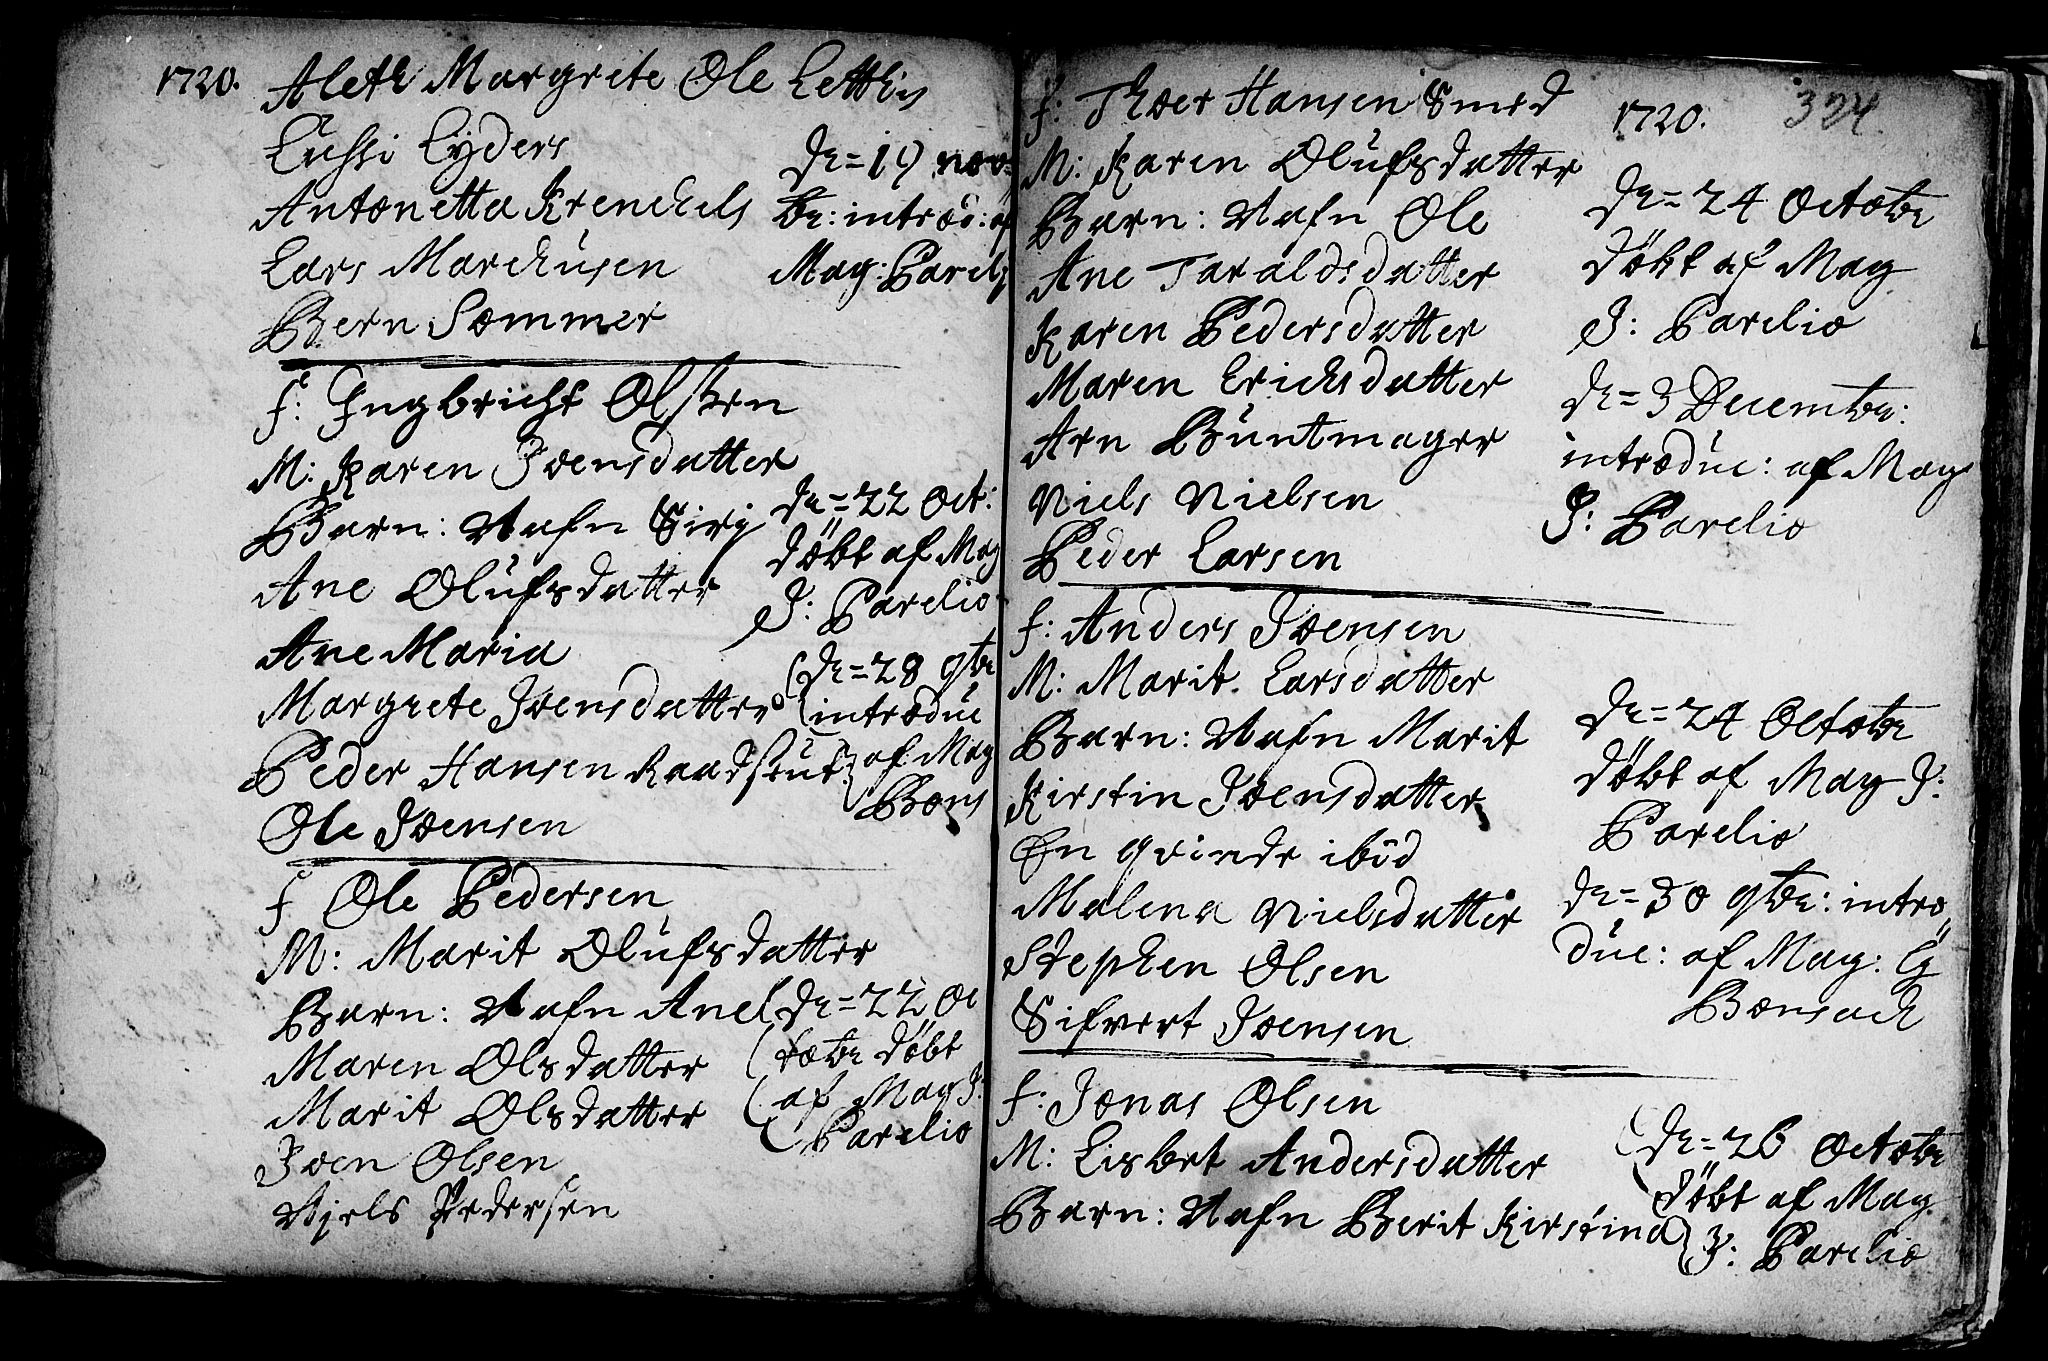 1720.
Aleth Margrete Ole Letthis
Lussi Lyders
Antonetta Krenckels
Lars Marckusen
Bern Sommer
dn = 19 nov=
br: introd: af
Mag: Parel
f: Ingbricht Olssen
M: Karen Joensdatter
Barn: Nafn Siri
Ane Olufsdatter
Ane Maria
Margrete Joensdatter
Peder Hansen Raadstut
Ole Joensen
dn = 22 Oct:
döbt af Mag
J: Parelio
dn = 28 9br
introduc
af Mag
Bons
f Ole Pedersen
M: Marit Olufsdatter
Barn: Nafn Ane
Maren Olsdatter
Marit Olsdatter
Joen Olsen
Njels Pedersen
dn = 22 Oc
tobr döbt
af Mag J:
Parelio
324
1720.
f: Thoer Hansen Smed
M: Karen Olufsdatter
Barn: Nafn Ole
Ane Taraldsdatter
Karen Pedersdatter
Maren Ericksdatter
Arn Buntmager
Niels Nielsen
Peder Larsen
dn = 24 Octobr
döbt af Mag
J: Parelio
dn = 3 Decembr:
introduc: af Mag
J: Parelio
f: Anders Joensen
M: Marit Larsdatter
Barn: Nafn Marit
Kirstin Joensdatter
En qvinde ibid
Malena Nielsdatter
Stephen Olsen
Sifvert Joensen
dn = 24 Octobr
döbt af Mag J:
Parelio
dn = 30 9br: intro
duc: af Mag:
Bonsack
f: Jonas Olsen
M: Lisbet Andersdatter
Barn: Nafn Berit Kirstina
dn = 26 Octobr
döbt af Mag
J: Parelio